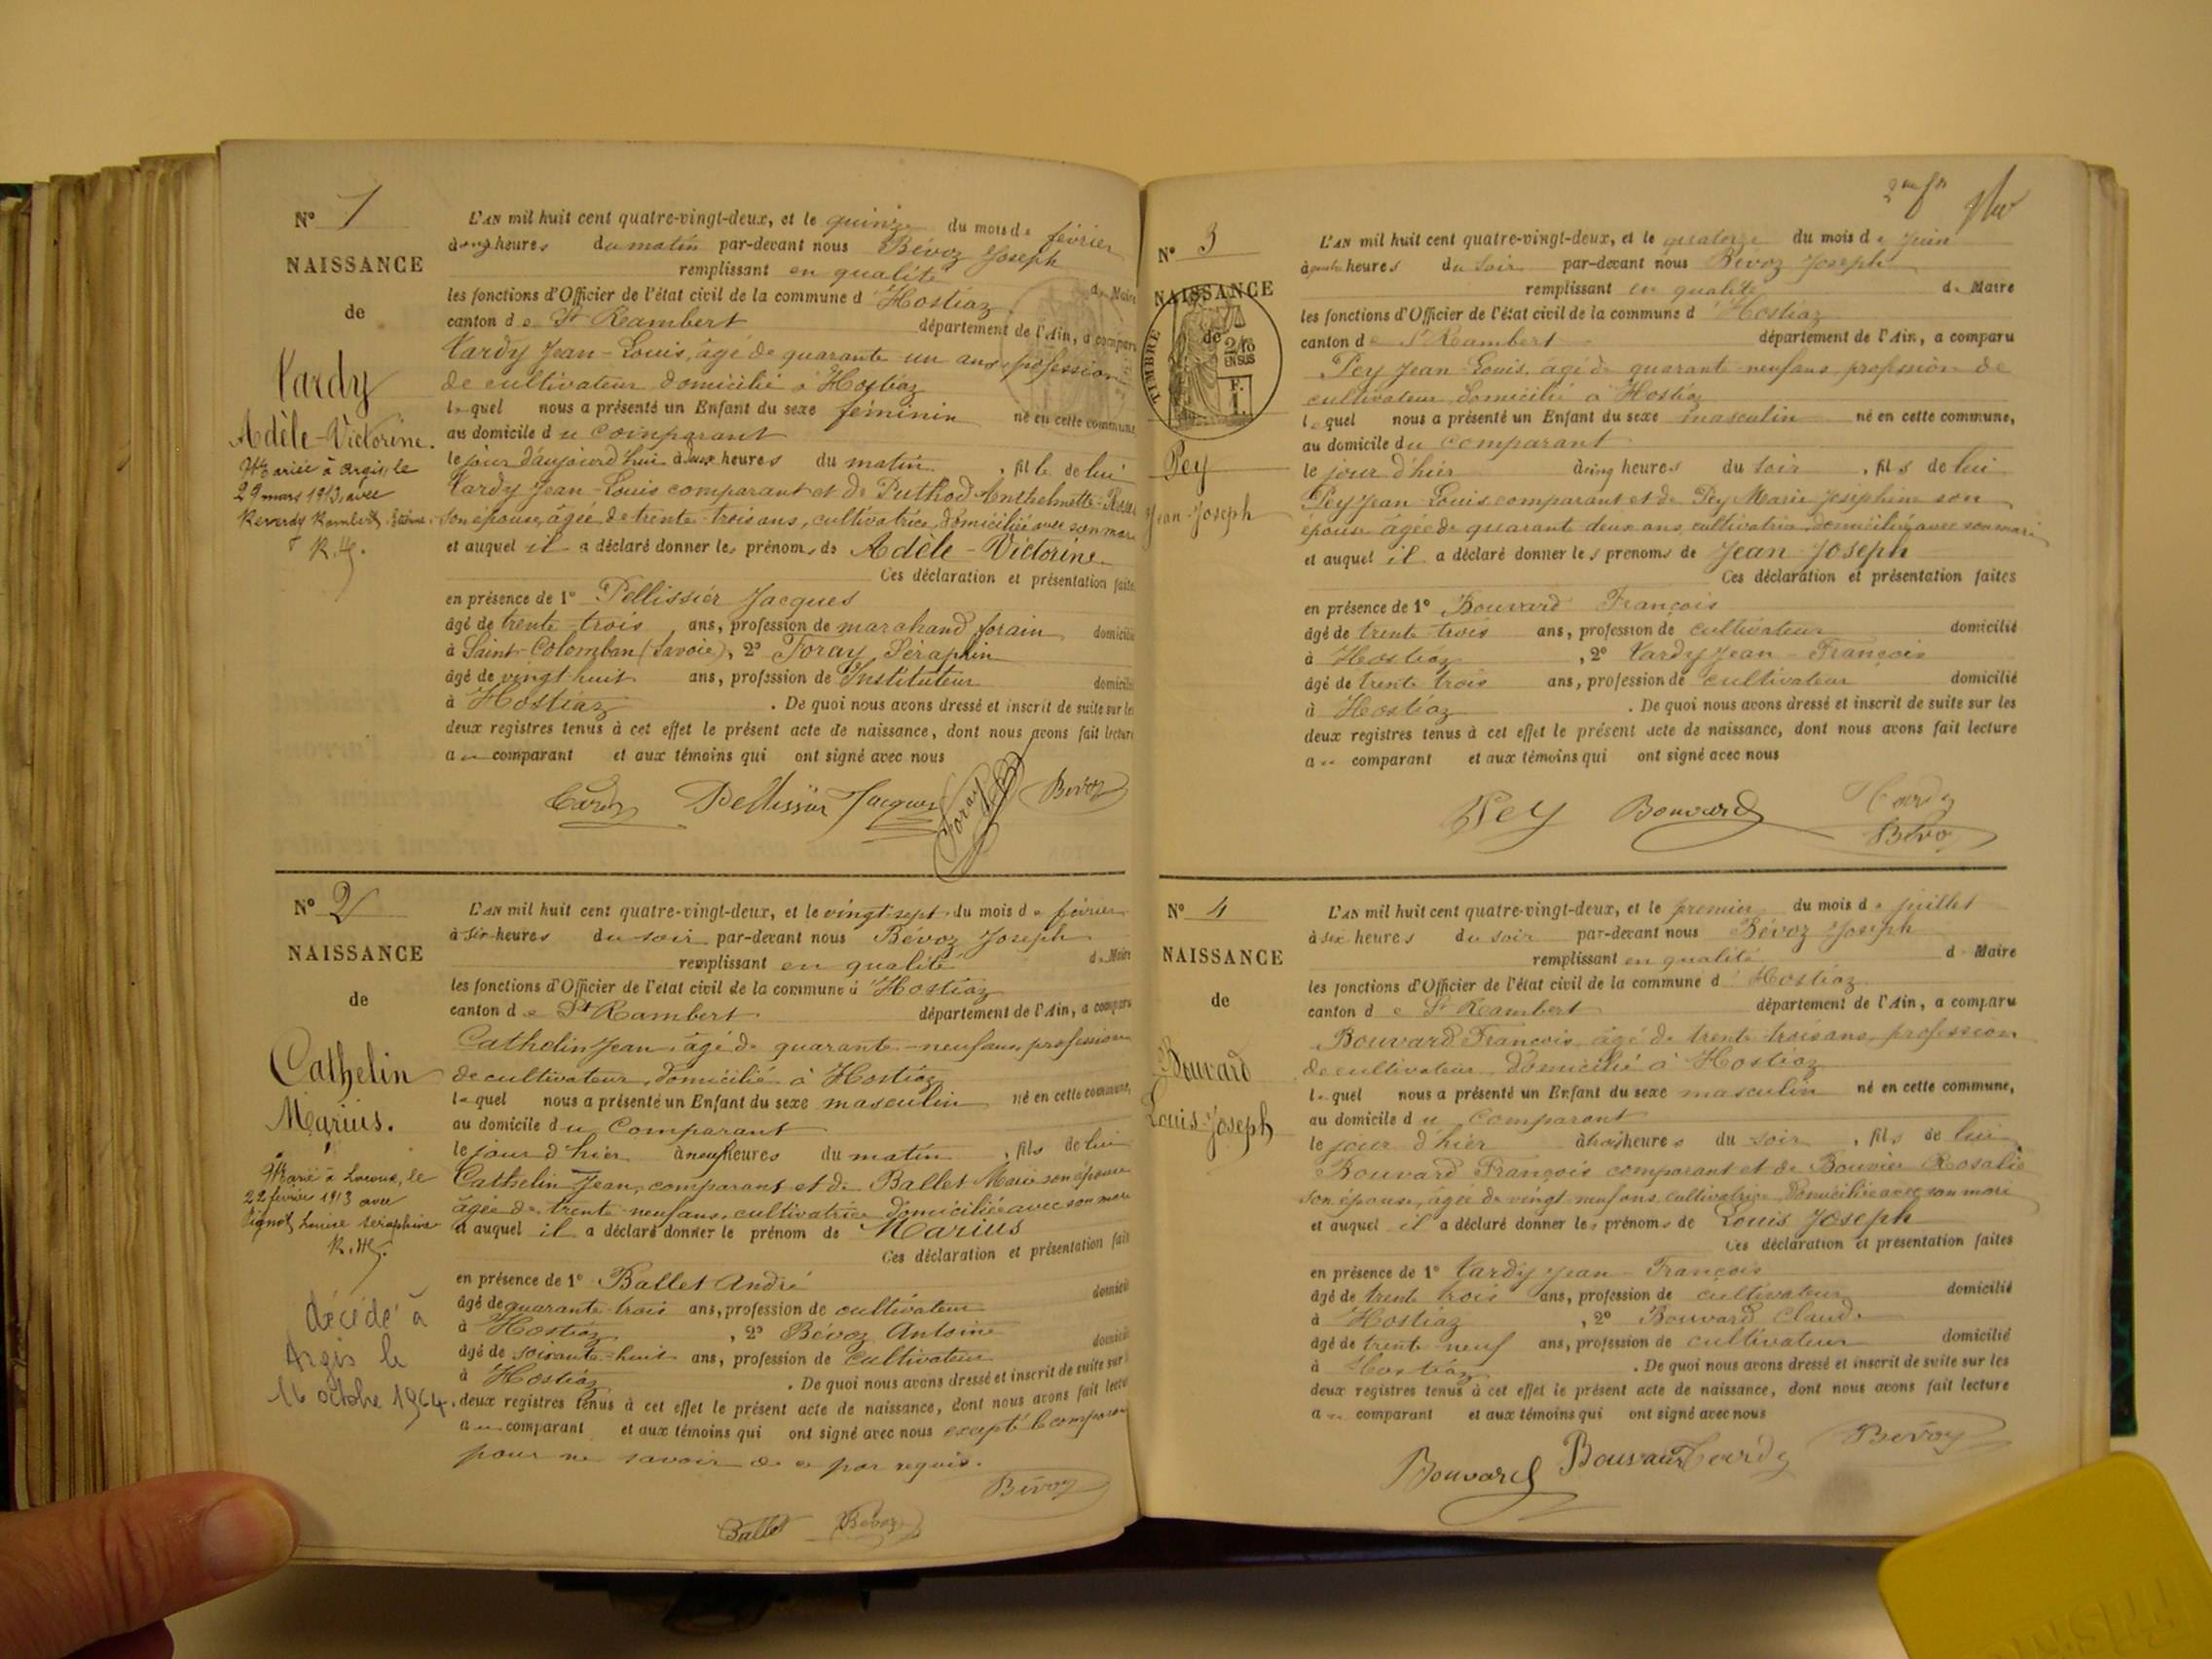 N° 1
NAISSANCE
de
Tardy
Adèle-Victorine.
Mariée à Argis, le
29 mars 1913, avec
Reverdy Rambert
R.
L'AN mil huit cent quatre-vingt-deux, et le quinze du mois de février
à cinq heures du matin par-devant nous Bévoz Joseph
remplissant en qualité de Maire
les fonctions d'Officier de l'état civil de la commune d'Hostiaz
canton de St Rambert département de l'Ain, a comparu
Tardy Jean-Louis, âgé de quarante un ans, profession
de cultivateur domicilié à Hostiaz
lequel nous a présenté un Enfant du sexe féminin né en cette commune
au domicile du comparant
le jour d'aujourd'hui à deux heures du matin, fille de lui
Tardy Jean-Louis comparant et de Puthod Anthelmette-Rosa
son épouse, âgée de trente-trois ans, cultivatrice, domiciliée avec son mari
et auquel il a déclaré donner les prénoms de Adèle-Victorine
Ces déclaration et présentation faites
en présence de 1° Pellissier Jacques
âgé de trente-trois ans, profession de marchand forain domicilié
à Saint-Colomban (Savoie), 2° Foray Séraphin
âgé de vingt-huit ans, profession de Instituteur domicilié
à Hostiaz. De quoi nous avons dressé et inscrit de suite sur les
deux registres tenus à cet effet le présent acte de naissance, dont nous avons fait lecture
au comparant et aux témoins qui ont signé avec nous
Tardy Pellissier Jacques Foray Bévoz
N° 2
NAISSANCE
de
Cathelin
Marius.
Marié à le
22 février 1913 avec
Louise Séraphine
R.
décédé à
Argis le
16 octobre 1964.
L'AN mil huit cent quatre-vingt-deux, et le vingt-sept du mois de février
à six heures du soir par-devant nous Bévoz Joseph
remplissant en qualité de Maire
les fonctions d'Officier de l'état civil de la commune d'Hostiaz
canton de St Rambert département de l'Ain, a comparu
Cathelin Jean, âgé de quarante-neuf ans, profession
de cultivateur, domicilié à Hostiaz
lequel nous a présenté un Enfant du sexe masculin né en cette commune,
au domicile du Comparant
le jour d'hier à neuf heures du matin, fils de lui
Cathelin Jean, comparant et de Ballet Marie son épouse
âgée de trente-neuf ans, cultivatrice domiciliée avec son mari
et auquel il a déclaré donner le prénom de Marius
Ces déclaration et présentation fait
en présence de 1° Ballet André
âgé de quarante-trois ans, profession de cultivateur domicilié
à Hostiaz, 2° Bévoz Antoine
âgé de soixante-huit ans, profession de cultivateur domicilié
à Hostiaz. De quoi nous avons dressé et inscrit de suite sur
deux registres tenus à cet effet le présent acte de naissance, dont nous avons fait lecture
au comparant et aux témoins qui ont signé avec nous excepté le comparant
pour ne savoir de ce par requis.
Bévoz
Ballet Bévoz
N° 3
NAISSANCE
de
TIMBRE
2/10
EN SUS
Pey
Jean-Joseph
L'AN mil huit cent quatre-vingt-deux, et le quatorze du mois de juin
à quatre heures du soir par-devant nous Bévoz Joseph
remplissant en qualité de Maire
les fonctions d'Officier de l'état civil de la commune d'Hostiaz
canton de St Rambert département de l'Ain, a comparu
Pey Jean-Louis, âgé de quarante-neuf ans profession de
cultivateur domicilié à Hostiaz
lequel nous a présenté un Enfant du sexe masculin né en cette commune,
au domicile du comparant
le jour d'hier à cinq heures du soir, fils de lui
Pey Jean-Louis comparant et de Pey Marie Joséphine son
épouse âgée de quarante deux ans cultivatrice domiciliée avec son mari
et auquel il a déclaré donner les prénoms de Jean Joseph
Ces déclaration et présentation faites
en présence de 1° Bouvard François
âgé de trente trois ans, profession de cultivateur domicilié
à Hostiaz, 2° Tardy Jean-François
âgé de trente trois ans, profession de cultivateur domicilié
à Hostiaz. De quoi nous avons dressé et inscrit de suite sur les
deux registres tenus à cet effet le présent acte de naissance, dont nous avons fait lecture
au comparant et aux témoins qui ont signé avec nous
Pey Bouvard Tardy
Bévoz
N° 4
NAISSANCE
de
Bouvard
Louis-Joseph
L'AN mil huit cent quatre-vingt-deux, et le premier du mois de juillet
à six heures du soir par-devant nous Bévoz Joseph
remplissant en qualité de Maire
les fonctions d'Officier de l'état civil de la commune d'Hostiaz
canton de St Rambert département de l'Ain, a comparu
Bouvard François, âgé de trente trois ans, profession
de cultivateur, domicilié à Hostiaz
lequel nous a présenté un Enfant du sexe masculin né en cette commune,
au domicile du comparant
le jour d'hier à trois heures du soir, fils de lui
Bouvard François comparant et de Bouvier Rosalie
son épouse, âgée de vingt-neuf ans, cultivatrice, domiciliée avec son mari
et auquel il a déclaré donner les prénoms de Louis Joseph
Ces déclaration et présentation faites
en présence de 1° Tardy Jean-François
âgé de trente trois ans, profession de cultivateur domicilié
à Hostiaz, 2° Bouvard Claude
âgé de trente neuf ans, profession de cultivateur domicilié
à Hostiaz. De quoi nous avons dressé et inscrit de suite sur les
deux registres tenus à cet effet le présent acte de naissance, dont nous avons fait lecture
au comparant et aux témoins qui ont signé avec nous
Bouvard Bouvard Tardy Bévoz